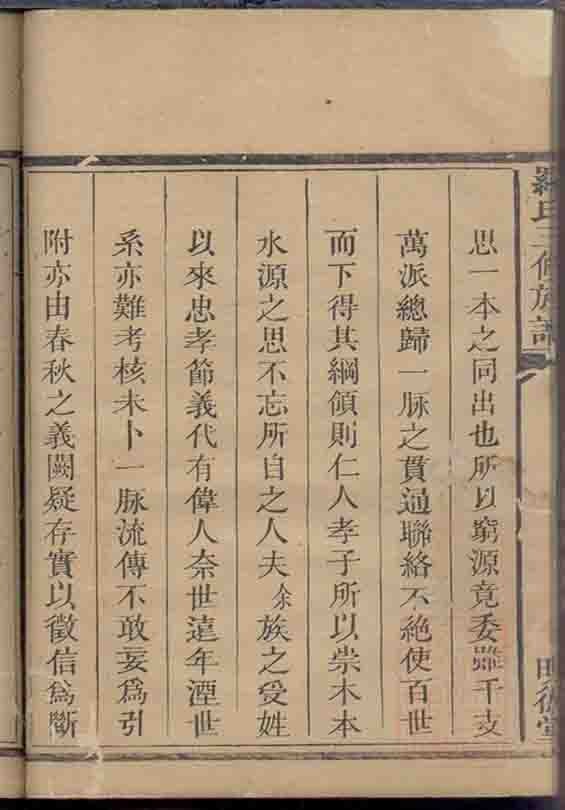 羅氏三修族譜
思一本之同出也所以窮源竟委雖千支
萬派總歸一脉之貫通聯絡不絕使百世
而下得其綱領則仁人孝子所以崇木本
水源之思不忘所自之人夫余族之受姓
以來忠孝節義代有偉人奈世遠年湮世
系亦難考核未卜一脉流傳不敢妄爲引
附亦由春秋之義闕疑存實以徵信爲斷